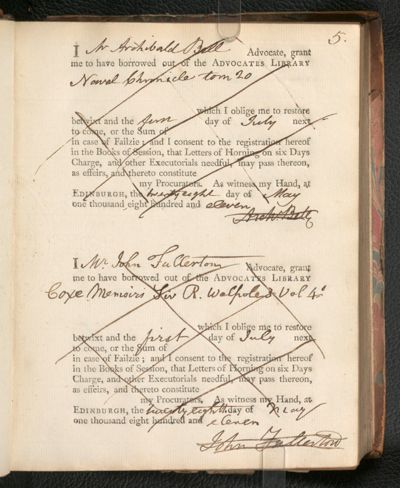 5.
I Mr Archibald Bell Advocate, grant
me to have borrowed out of the ADVOCATES LIBRARY
Naval Chronicle tom 20
which I oblige me to restore
betwixt and the first day of July next
to come, or the Sum of
in case of Failzie; and I consent to the registration hereof
in the Books of Session, that Letters of Horning on six Days
Charge, and other Executorials needful, may pass thereon,
as effeirs, and thereto constitute
my Procurators. As witness my Hand, at
EDINBURGH, the twenty eight day of May
one thousand eight hundred and eleven
Archd Bell
I Mr. John Fullerton Advocate, grant
me to have borrowed out of the ADVOCATES LIBRARY
Coxe Memoirs Sir R. Walpole 3 Vol 4o
which I oblige me to restore
betwixt and the first day of July next
to come, or the Sum of
in case of Failzie; and I consent to the registration hereof
in the Books of Session, that Letters of Horning on six Days
Charge, and other Executorials needful, may pass thereon,
as effeirs, and thereto constitute
my Procurators. As witness my Hand, at
EDINBURGH, the twenty eighth day of May
one thousand eight hundred and eleven
John Fullerton